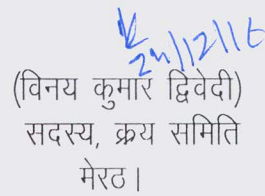 24/12/16
(विनय कुमार द्विवेदी)
सदस्य, क्रय समिति
मेरठ।